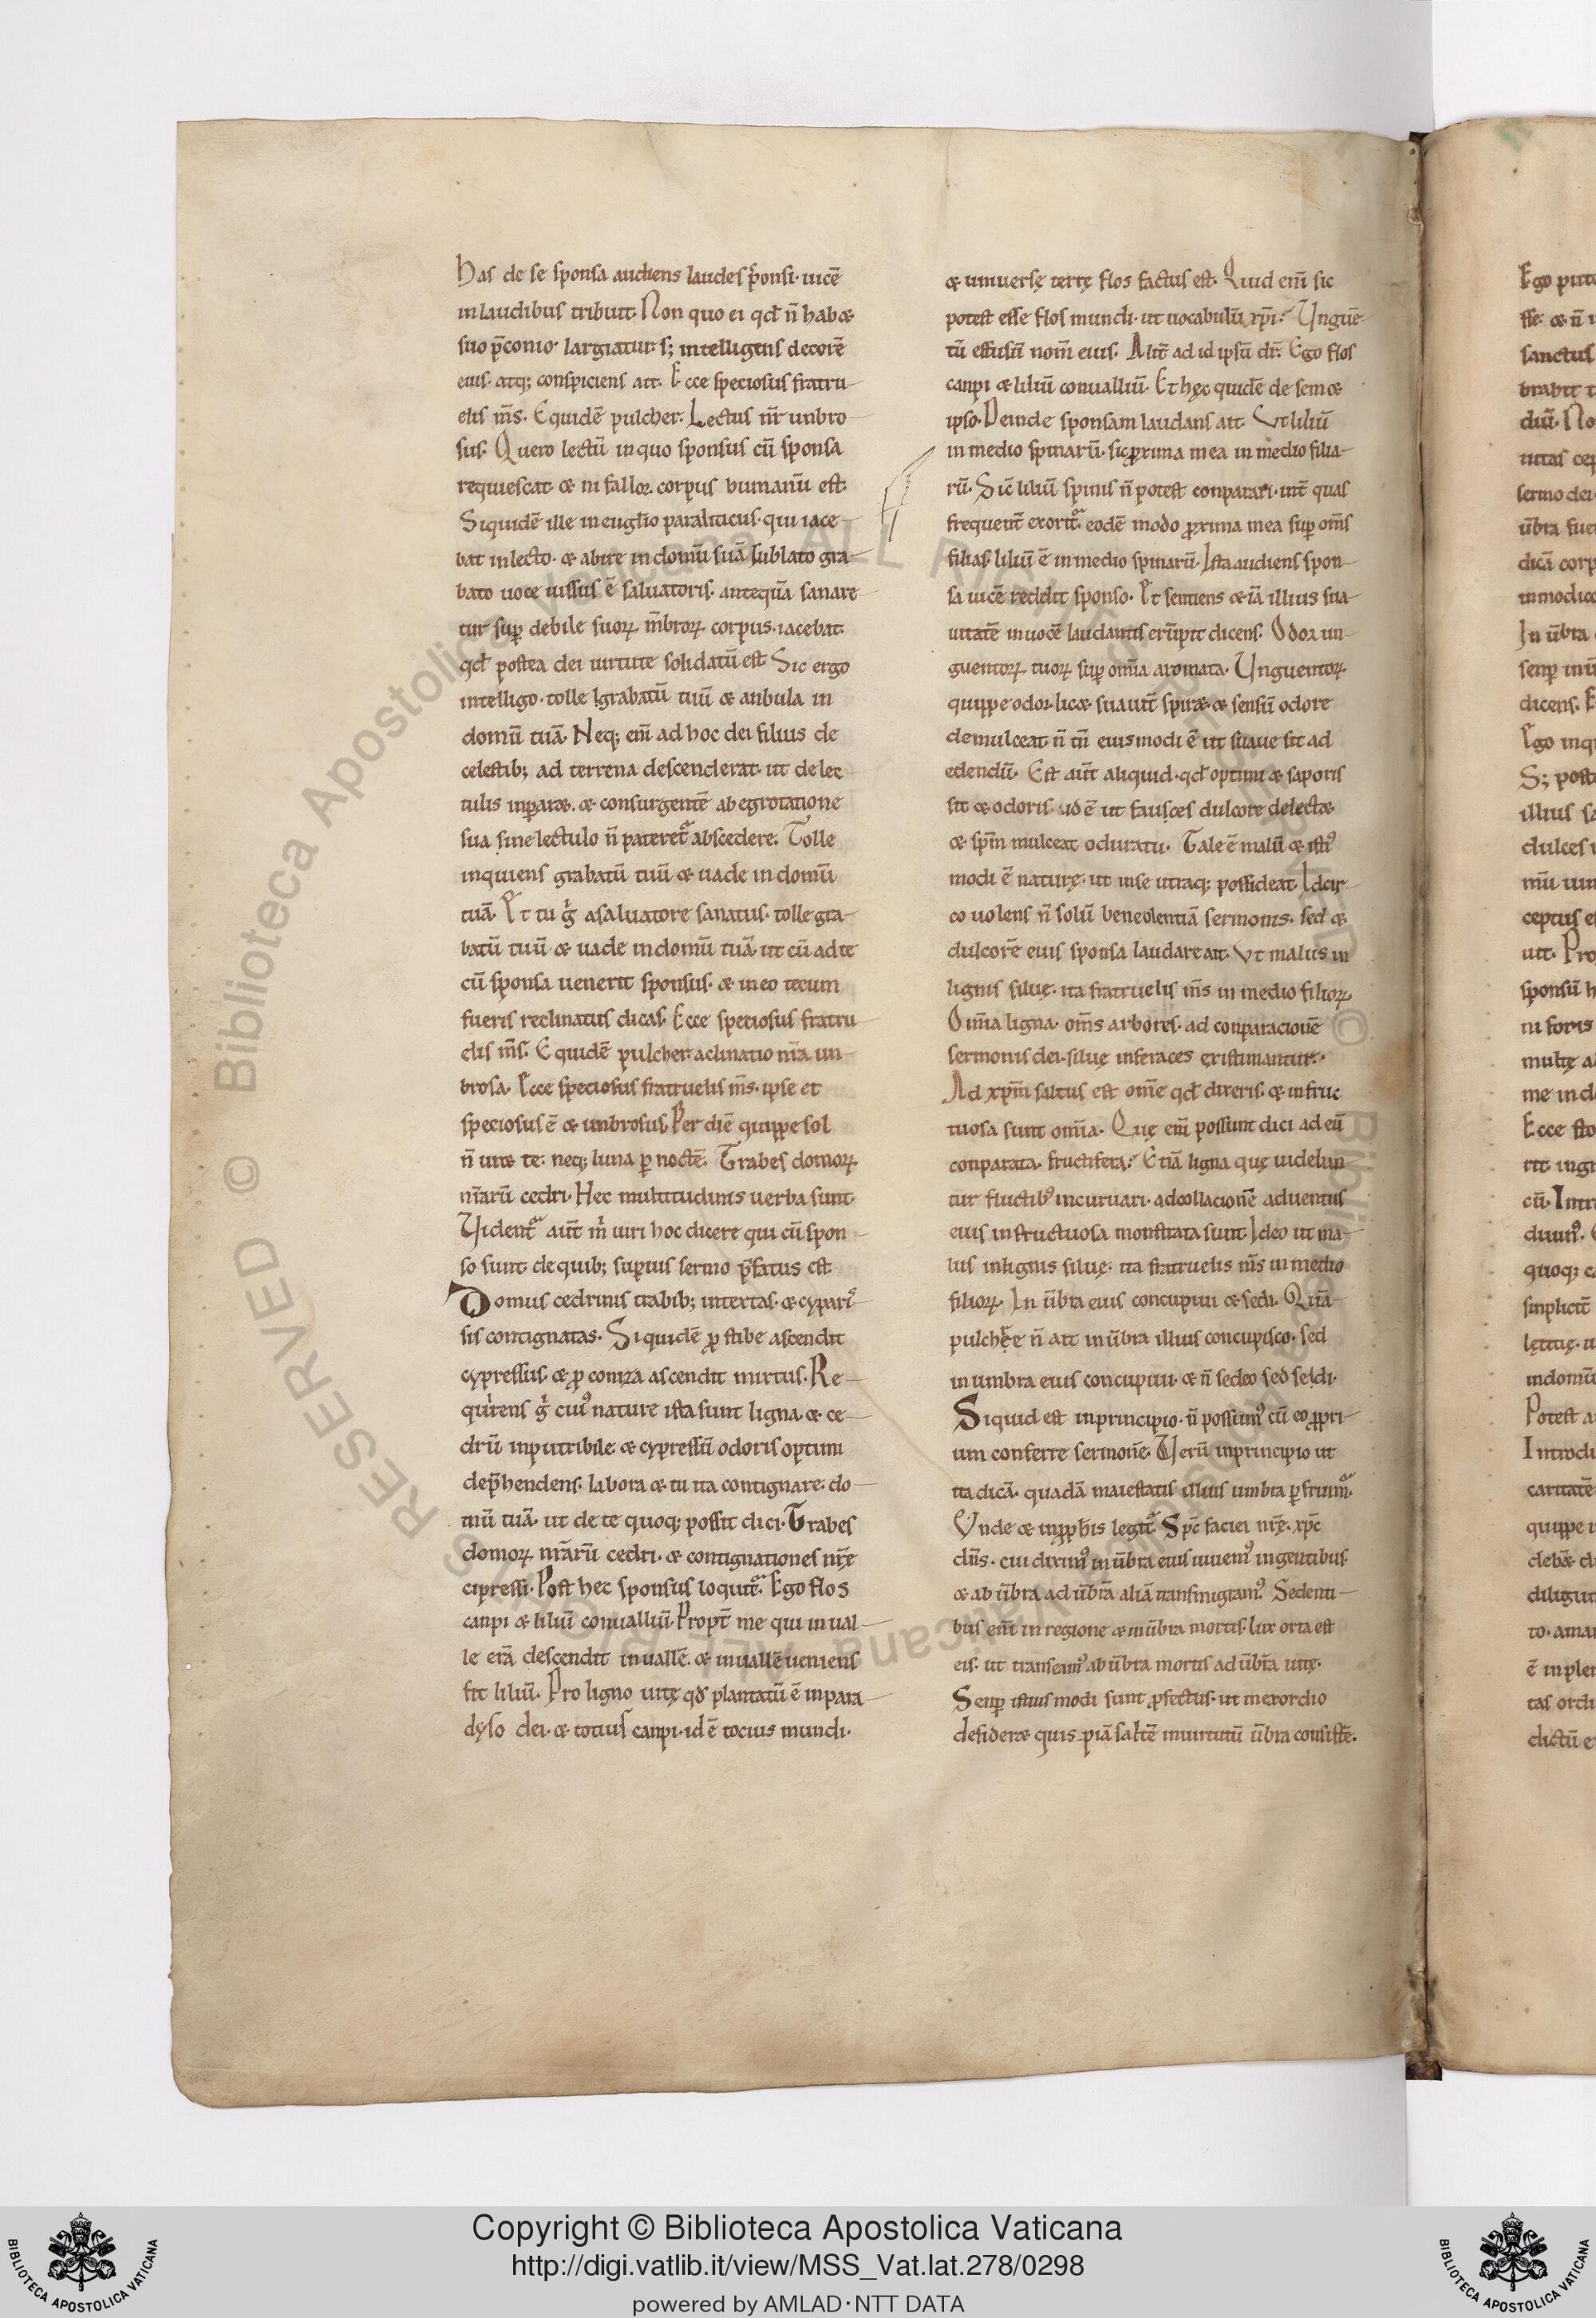 has de se sponsa audiens laudes sponsi· uicē
in laudibus tribuit. Non quo ei qđ n̄ habꝫ
suo p̄conio largiatur. s; intelligens decorē
eius· atq; conspiciens ait. Ecce speciosus fratru
elis m̄s. Equidē pulcher. Lectus nr̄ unbro
sus. Quero lectū in quo sponsus cū sponsa
requiescat· & ni fallor corpus humanū est.
Siquidē ille in euglio paraliticus· qui iace
bat in lecto· & abire in domū suā sublato gra
bato uoce iussus ē saluatoris· anteqūa sanare
tur sup̱ debile suoꝝ m̄broꝝ corpus· iacebat.
qđ postea dei uirtute solidatū est. Sic ergo
intelligo· tolle grabatū tuū & anbula in
domū tuā. Neq; em̄ ad hoc dei filius de
celestib; ad terrena descenderat· ut de lec
tulis inparet· & consurgentē ab egrotatione
sua sine lectulo n̄ pateret abscedere. Tolle
inquiens grabatū tuū & uade in domū
tuā. Et tu g̊ a saluatore sanatus· tolle gra
batū tuū & uade in domū tuā· ut cū ad te
cū sponsa uenerit sponsus· & in eo tecum
fueris reclinatus dicas. Ecce speciosus fratru
elis m̄s. Equidē pulcher· aclinatio nr̄a un
brosa. Ecce speciosus fratruelis m̄s· ipse et
speciosus ē & unbrosus. Per diē quippe sol
n̄ uret te· neq; luna ꝑ noctē. Trabes domoꝝ
nr̄arū cedri. Hec multitudinis uerba sunt.
Uident aut̄ m̄ uiri hoc dicere qui cū spon
so sunt· de quib; superius sermo p̄fatus est
Domus cedrinis trabib; intextas· & cypari
sis contignatas. Siquidē ꝓ stibe ascendit
cypressus· & ꝓ coniza ascendit mirtus. Re
quirens g̊ cui⁹ nature ista sunt ligna· & ce
drū inputribile & cypressū odoris optimi
dep̄hendens· labora & tu ita contignare do
mū tuā· ut de te quoq; possit dici. Trabes
domoꝝ nr̄arū cedri· & contignationes nr̄ę
cipressi. Post hec sponsus loquit. Ego flos
canpi & liliū conualliū. Propt̄ me qui in ual
le erā descendit in uallē· & in uallē ueniens
fit liliū. Pro ligno uitę qđ plantatū ē in para
dyso dei· & totius canpi· id ē tocius mundi·
& uniuersę terrę flos factus est. Quid em̄ sic
potest esse flos mundi· ut uocabulū xp̄i? Unguē
tū effusū nom̄ eius. Alit̄ ad id ipsū dr̄. Ego flos
canpi & liliū conualliū. Et hęc quidē de semet
ipso. Deinde sponsam laudans ait. Ut liliū
in medio spinarū· sic proxima mea in medio filia
rū. Sic liliū spinis n̄ potest conparari· int̄ quas
frequent̄ exorit· eodē modo proxima mea sup̱ om̄s
filias· liliū ē in medio spinarū. Ista audiens spon
sa uicē reddit sponso. Et sentiens & iā illius sua
uitatē in uocē laudantis erūpit dicens. Odor un
guentoꝝ tuoꝝ sup̱ om̄ia aromata. Unguentoꝝ
quippe odor· licet suauit̄ spiret· & sensū odore
demulceat· n̄ tn̄ eiusmodi ē ut suaue sit ad
edendū. Est aut̄ aliquid· qđ optimi & saporis
sit & odoris· id ē ut fausces dulcore delectet
& sp̄m mulceat odoratu. Tale ē malū & isti⁹
modi ē naturę· ut in se utraq; possideat. Idcir
co uolens n̄ solū beneolentiā sermonis· sed &
dulcorē eius sponsa laudare ait. Ut malus in
lignis siluę· ita fratruelis m̄s in medio filioꝝ.
Om̄ia ligna· om̄s arbores· ad conparacionē
sermonis dei· siluę inferaces ęxistimantur.
Ad xp̄m saltus est om̄e qđ dixeris· & infruc
tuosa sunt om̄ia. Quę em̄ possunt dici ad eū
conparata· fructifera? Etiā ligna quę uideban
tur fluctib⁹ incuruari· ad collacionē aduentus
eius infructuosa monstrata sunt. Ideo ut ma
lus in lignis siluę· ita fratruelis m̄s in medio
filioꝝ. In ūbra eius concupiui & sedi. Quā
pulchre n̄ ait in ūbra illius concupisco· sed
in umbra eius concupiui· & n̄ sedeo sed sedi.
Siquid est in principio· n̄ possum⁹ cū eo propri
um conferre sermonē. Uerū in principio ut
ita dicā· quadā maiestatis illius umbra ꝑfruim.
Unde & in proph̄is legit. Sp̄c faciei nr̄ę· xp̄c
dn̄s· cui dixim⁹ in ūbra eius uiuem⁹ in gentibus·
& ab ūbra ad ūbrā aliā transmigram⁹. Sedenti
bus em̄ in regione & in ūbra mortis· lux orta est
eis· ut transeam⁹ ab ūbra mortis ad ūbrā uitę.
Senp̱ istius modi sunt ꝓfectus· ut in exordio
desideret quis piā saltē in uirtutū ūbra consistē.
Copyright © Biblioteca Apostolica Vaticana
http://digi.vatlib.it/view/MSS_Vat.lat.278/0298
powered by AMLAD·NTT DATA